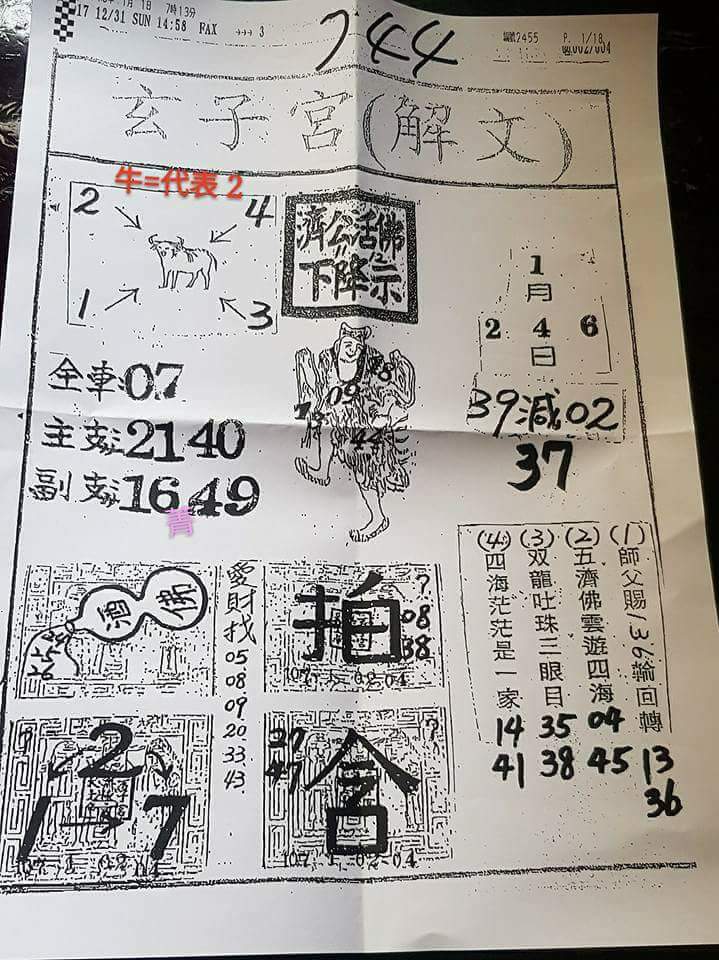 1月 1日 7時13分
17 12/31 SUN 14:58 FAX →→→ 3
744
編號2455 P. 1/18
002/004
玄子宮(解文)
牛=代表2
2 4
1 3
濟公活佛
下降示
1
月
2 4 6
日
全車:07
主支:21 40
副支:16 49
青
09
18
44
39減02
37
(1)師父賜136輪回轉
13
36
(2)五濟佛雲遊四海
04
45
(3)双龍吐珠三眼目
35
38
(4)四海茫茫是一家
14
41
酒 佛
愛財找
05
08
09
20
33
43
拍
?
08
38
107. 1. 02-04
2
1 → 7
?
?
107. 1. 02-04
37
47
?
107. 1. 02-04